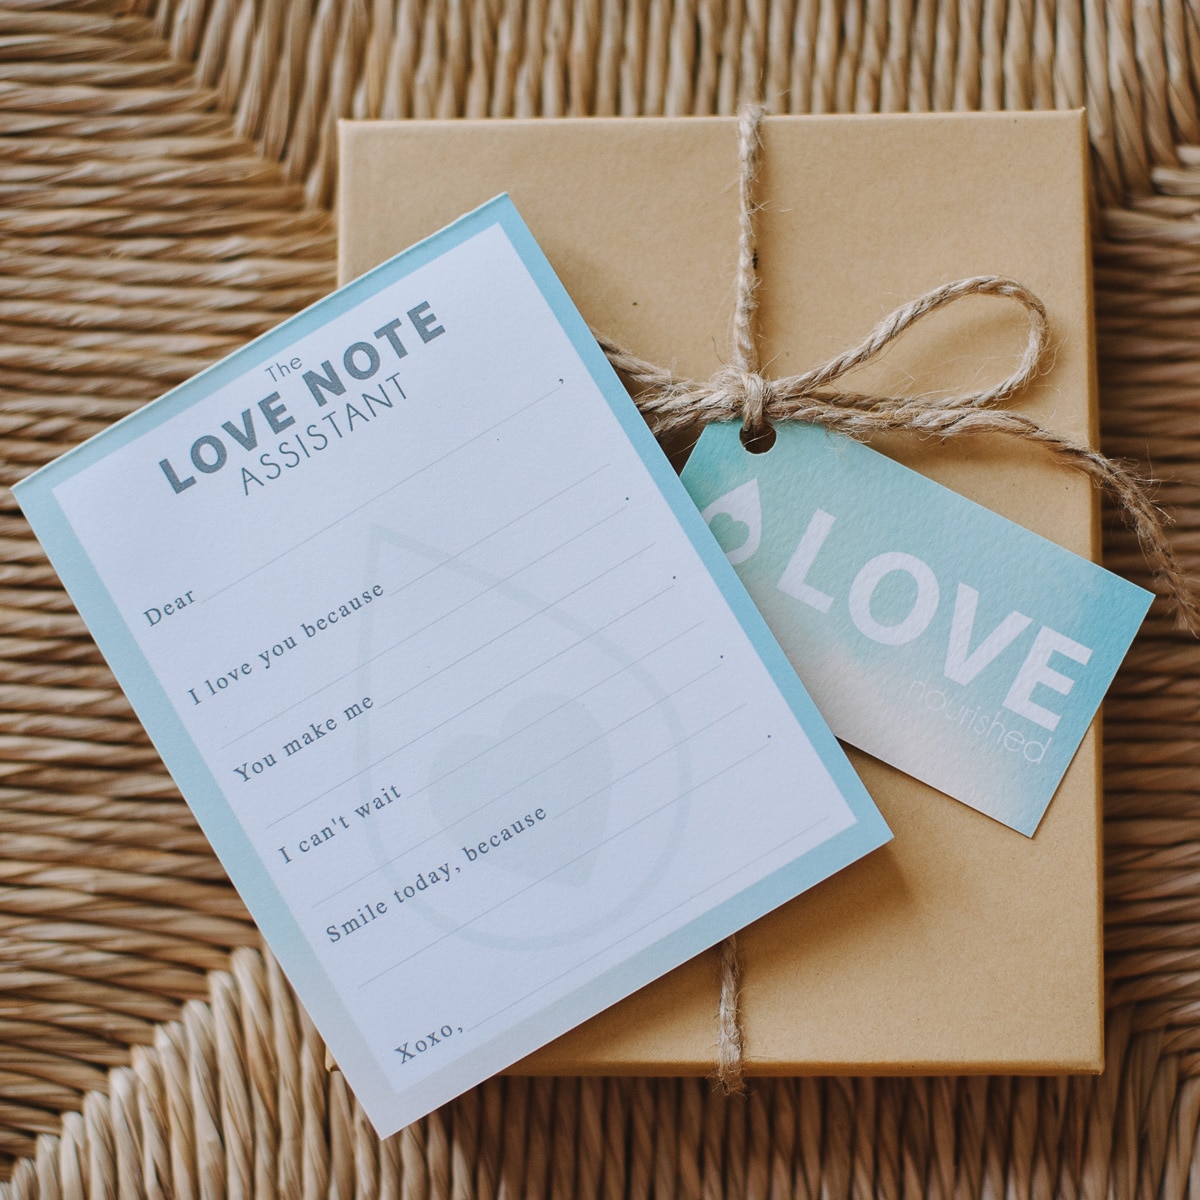 The
LOVE NOTE
ASSISTANT
Dear ,
I love you because
.
You make me
.
I can't wait
.
Smile today, because
.
Xoxo,
LOVE
nourished